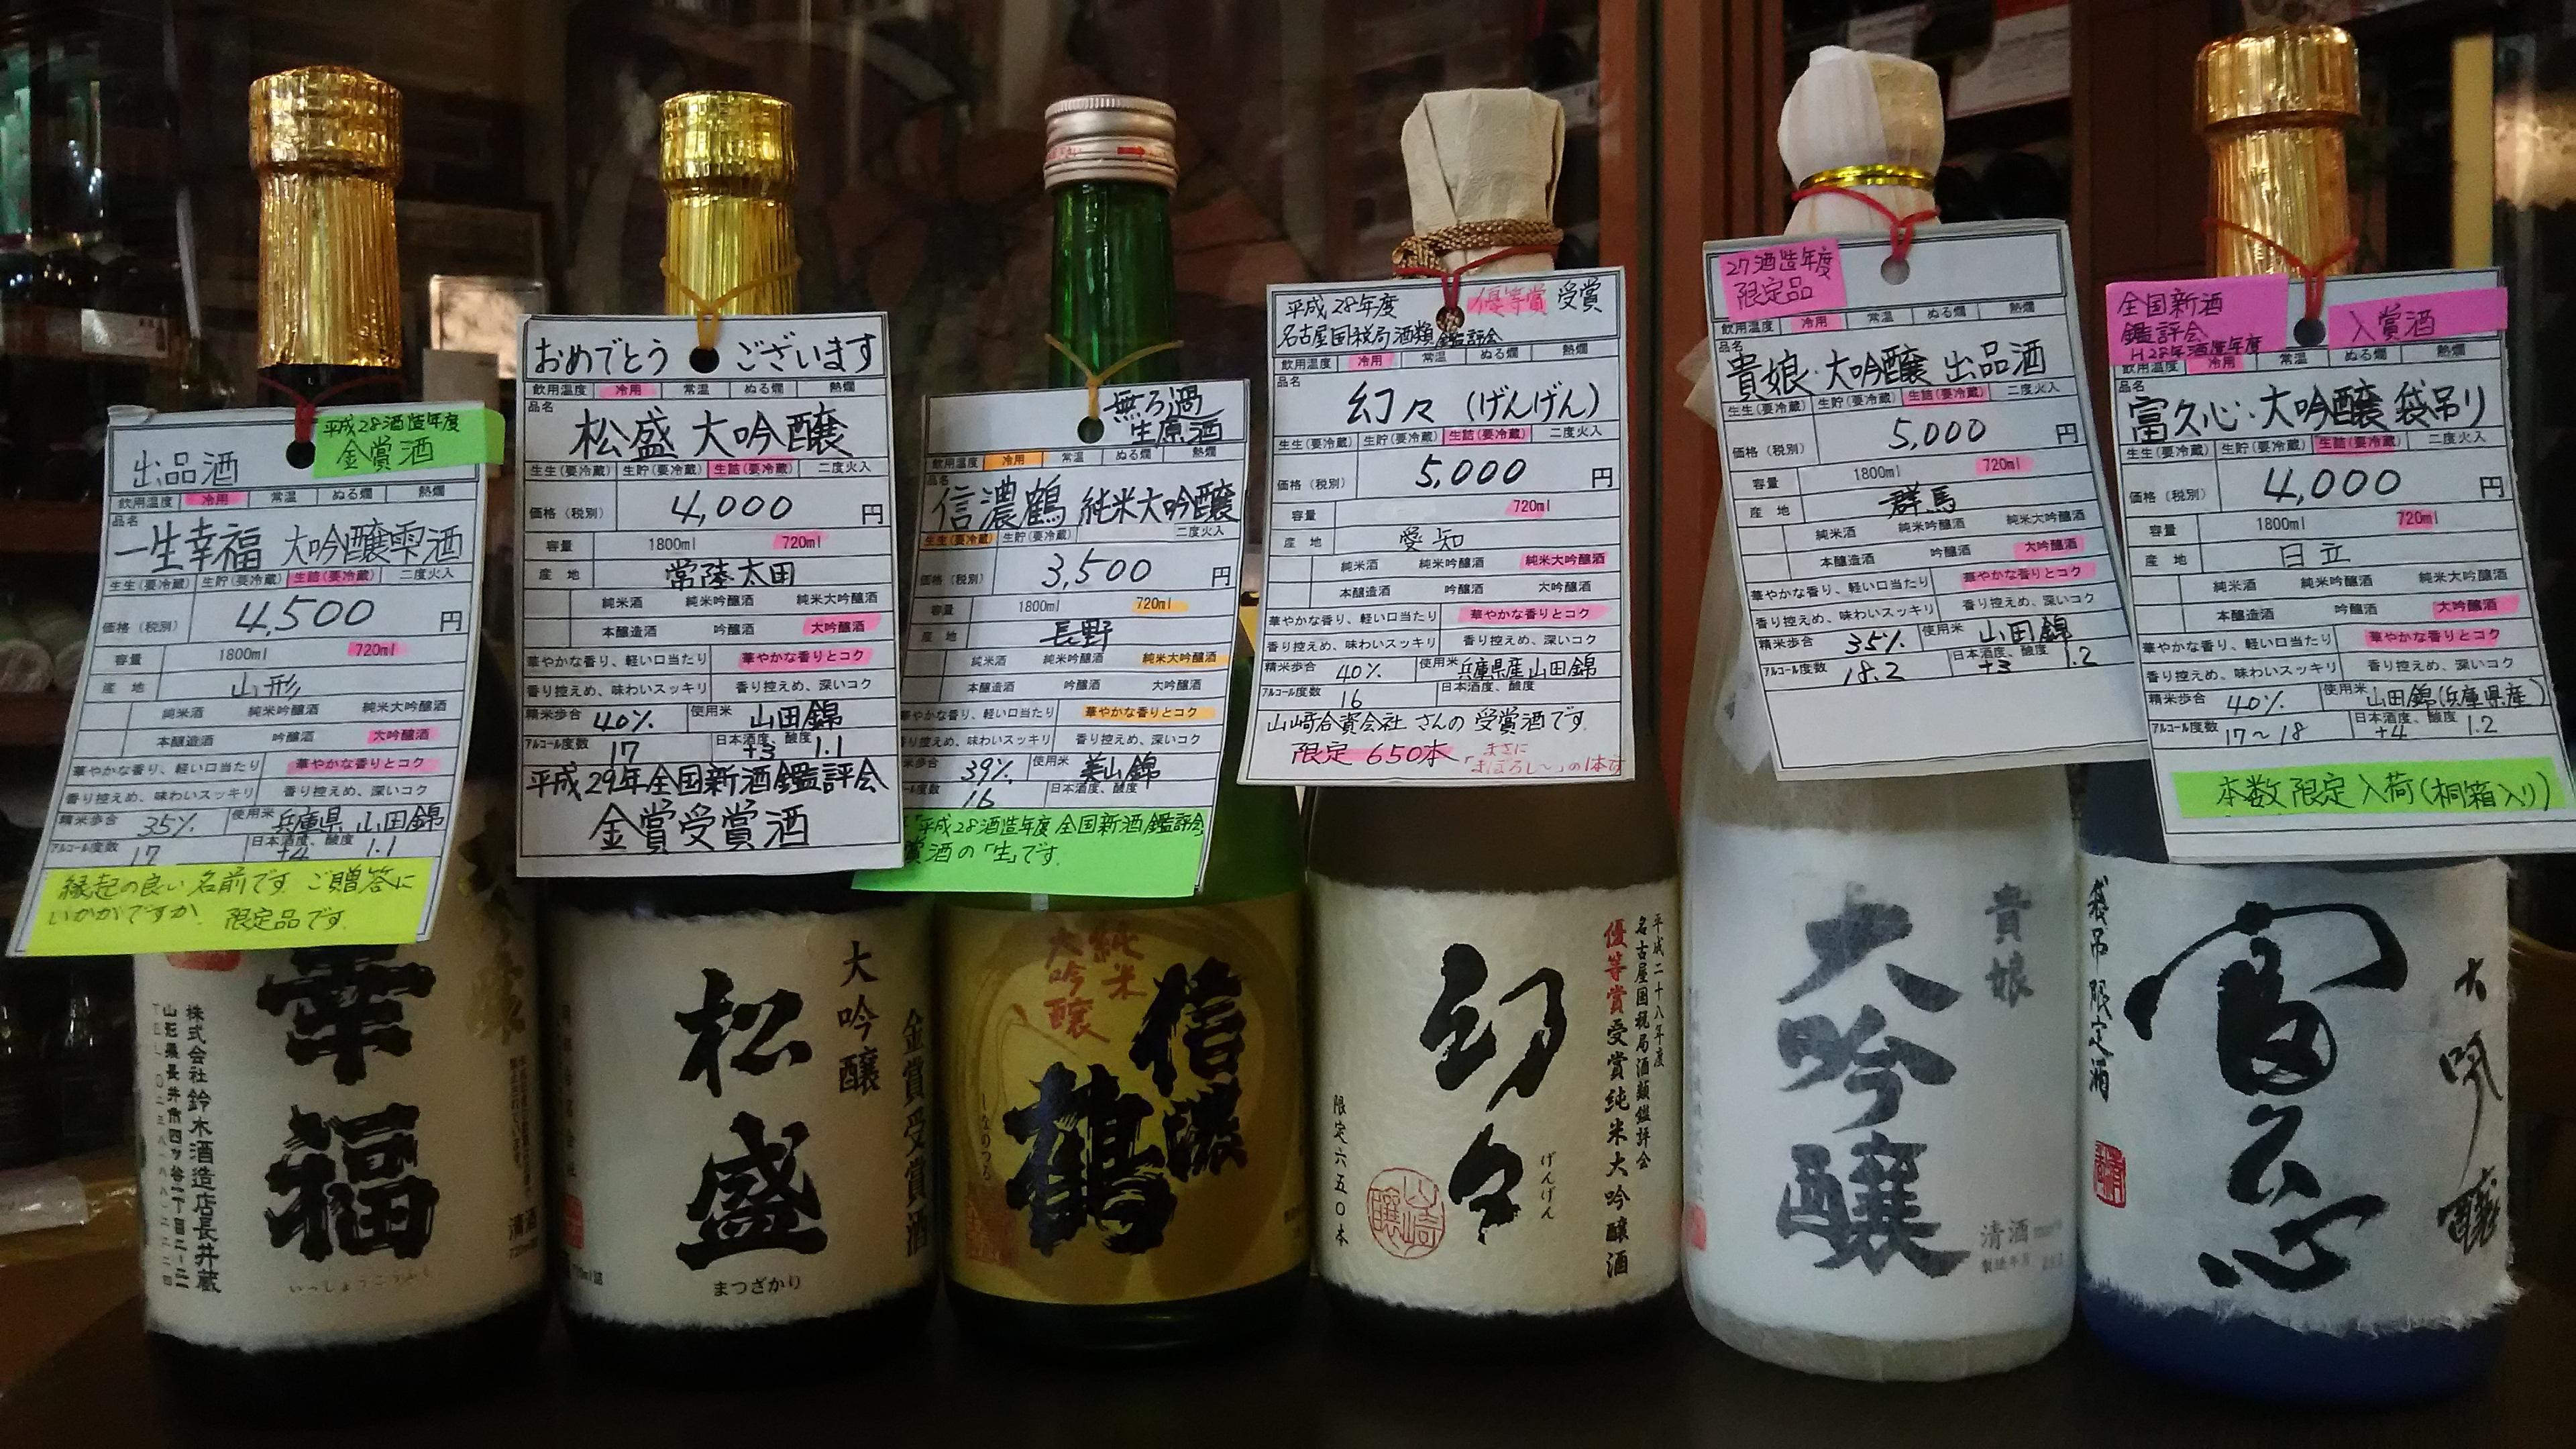 平成28酒造年度
金賞酒
出品酒
飲用温度 冷用 常温 ぬる燗 熱燗
品名
一生幸福 大吟醸雫酒
生生(要冷蔵) 生貯(要冷蔵) 生詰(要冷蔵) 二度火入
価格(税別) 4,500 円
容量 1800ml 720ml
産地 山形
純米酒 純米吟醸酒 純米大吟醸酒
本醸造酒 吟醸酒 大吟醸酒
華やかな香り、軽い口当たり 華やかな香りとコク
香り控えめ、味わいスッキリ 香り控えめ、深いコク
精米歩合 35% 使用米 兵庫県 山田錦
アルコール度数 17 日本酒度、酸度 +4 1.1
縁起の良い名前です ご贈答に
いかがですか. 限定品です.
幸福
いっしょうこうふく
株式会社鈴木酒造店長井蔵
山形県長井市四ツ谷一丁目二-二一
清酒
おめでとう ございます
飲用温度 冷用 常温 ぬる燗 熱燗
品名
松盛 大吟醸
生生(要冷蔵) 生貯(要冷蔵) 生詰(要冷蔵) 二度火入
価格(税別) 4,000 円
容量 1800ml 720ml
産地 常陸太田
純米酒 純米吟醸酒 純米大吟醸酒
本醸造酒 吟醸酒 大吟醸酒
華やかな香り、軽い口当たり 華やかな香りとコク
香り控えめ、味わいスッキリ 香り控えめ、深いコク
精米歩合 40% 使用米 山田錦
アルコール度数 17 日本酒度、酸度 +3 1.1
平成29年全国新酒鑑評会
金賞受賞酒
金賞受賞酒
大吟醸
松盛
まつざかり
無ろ過
生原酒
飲用温度 冷用 常温 ぬる燗 熱燗
品名
信濃鶴 純米大吟醸
生生(要冷蔵) 生貯(要冷蔵) 二度火入
価格(税別) 3,500 円
容量 1800ml 720ml
産地 長野
純米酒 純米吟醸酒 純米大吟醸酒
本醸造酒 吟醸酒 大吟醸酒
華やかな香り、軽い口当たり 華やかな香りとコク
香り控えめ、味わいスッキリ 香り控えめ、深いコク
米歩合 39% 使用米 美山錦
ール度数 16 日本酒度、酸度
平成28酒造年度 全国新酒鑑評会
賞酒の「生」です.
純米
大吟醸
信濃
鶴
しなのつる
平成28年度 優等賞 受賞
名古屋国税局酒類鑑評会
飲用温度 冷用 常温 ぬる燗 熱燗
品名
幻々 (げんげん)
生生(要冷蔵) 生貯(要冷蔵) 生詰(要冷蔵) 二度火入
価格(税別) 5,000 円
容量 720ml
産地 愛知
純米酒 純米吟醸酒 純米大吟醸酒
本醸造酒 吟醸酒 大吟醸酒
華やかな香り、軽い口当たり 華やかな香りとコク
香り控えめ、味わいスッキリ 香り控えめ、深いコク
精米歩合 40% 使用米 兵庫県産山田錦
アルコール度数 16 日本酒度、酸度
山﨑合資会社 さんの 受賞酒です.
限定 650本 まさに
「まぼろし〜」の1本です
平成二十八年度
名古屋国税局酒類鑑評会
優等賞受賞純米大吟醸酒
幻々
げんげん
限定六五〇本
27酒造年度
限定品
飲用温度 冷用 常温 ぬる燗 熱燗
品名
貴娘・大吟醸 出品酒
生生(要冷蔵) 生貯(要冷蔵) 生詰(要冷蔵) 二度火入
価格(税別) 5,000 円
容量 1800ml 720ml
産地 群馬
純米酒 純米吟醸酒 純米大吟醸酒
本醸造酒 吟醸酒 大吟醸酒
華やかな香り、軽い口当たり 華やかな香りとコク
香り控えめ、味わいスッキリ 香り控えめ、深いコク
精米歩合 35% 使用米 山田錦
アルコール度数 18.2 日本酒度、酸度 +3 1.2
貴娘
大吟醸
清酒
全国新酒
鑑評会
H28年酒造年度
入賞酒
飲用温度 冷用 常温 ぬる燗 熱燗
品名
富久心・大吟醸 袋吊り
生生(要冷蔵) 生貯(要冷蔵) 生詰(要冷蔵) 二度火入
価格(税別) 4,000 円
容量 1800ml 720ml
産地 日立
純米酒 純米吟醸酒 純米大吟醸酒
本醸造酒 吟醸酒 大吟醸酒
華やかな香り、軽い口当たり 華やかな香りとコク
香り控えめ、味わいスッキリ 香り控えめ、深いコク
精米歩合 40% 使用米 山田錦(兵庫県産)
アルコール度数 17〜18 日本酒度、酸度 +4 1.2
本数限定入荷(桐箱入り)
大吟醸
富久心
袋吊 限定酒